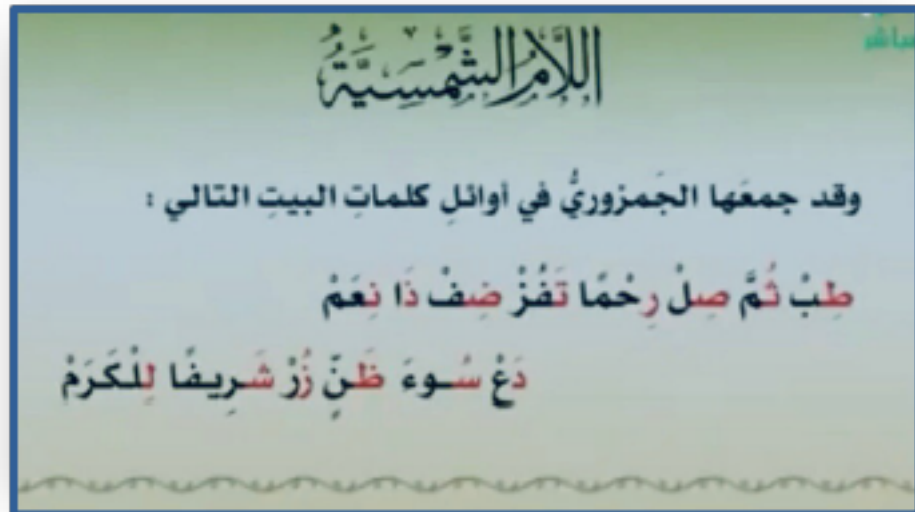 مباشر
اللَّامُ الشَّمْسِيَّةُ
وقد جمعَها الجَمزوريُّ في أوائلِ كلماتِ البيتِ التالي :
طِبْ ثُمَّ صِلْ رِحْمًا تَفُزْ ضِفْ ذَا نِعَمْ
دَعْ سُوءَ ظَنٍّ زُرْ شَرِيفًا لِلْكَرَمْ